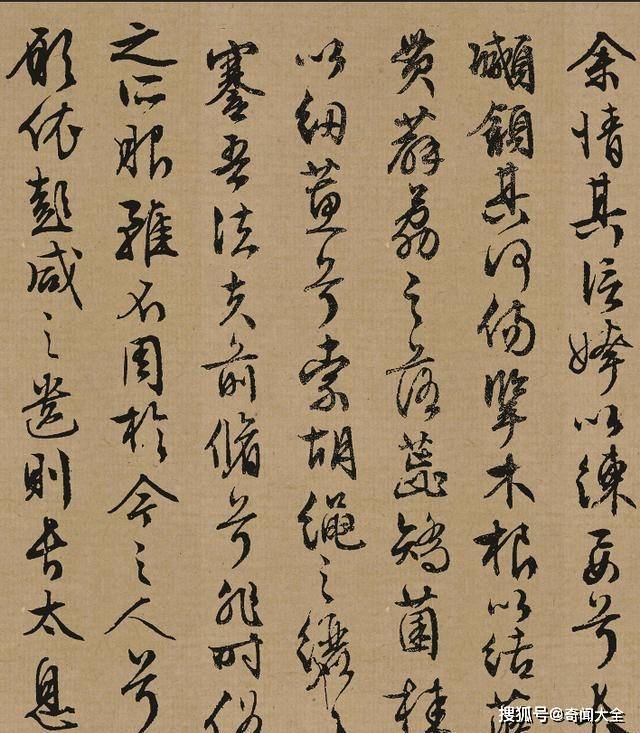 余情其信姱以練要兮長
顑頷其何傷擥木根以結茝
貫薜荔之落蕊矯菌桂
以紉蕙兮索胡繩之纚
謇吾法夫前脩兮非時俗
之所服雖不周於今之人兮
願依彭咸之遺則長太息
搜狐号@奇闻大全